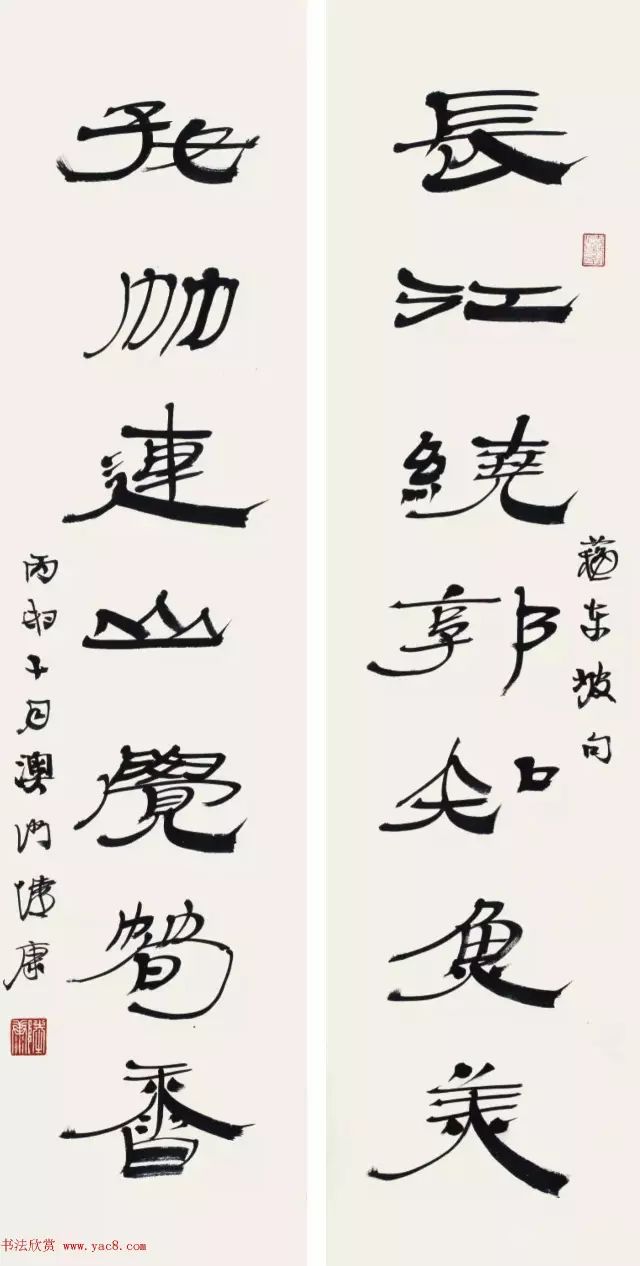 長江繞郭知魚美
蘇东坡句
好竹連山覺筍香
丙申十月澳门陸康
书法欣赏 www.yac8.com